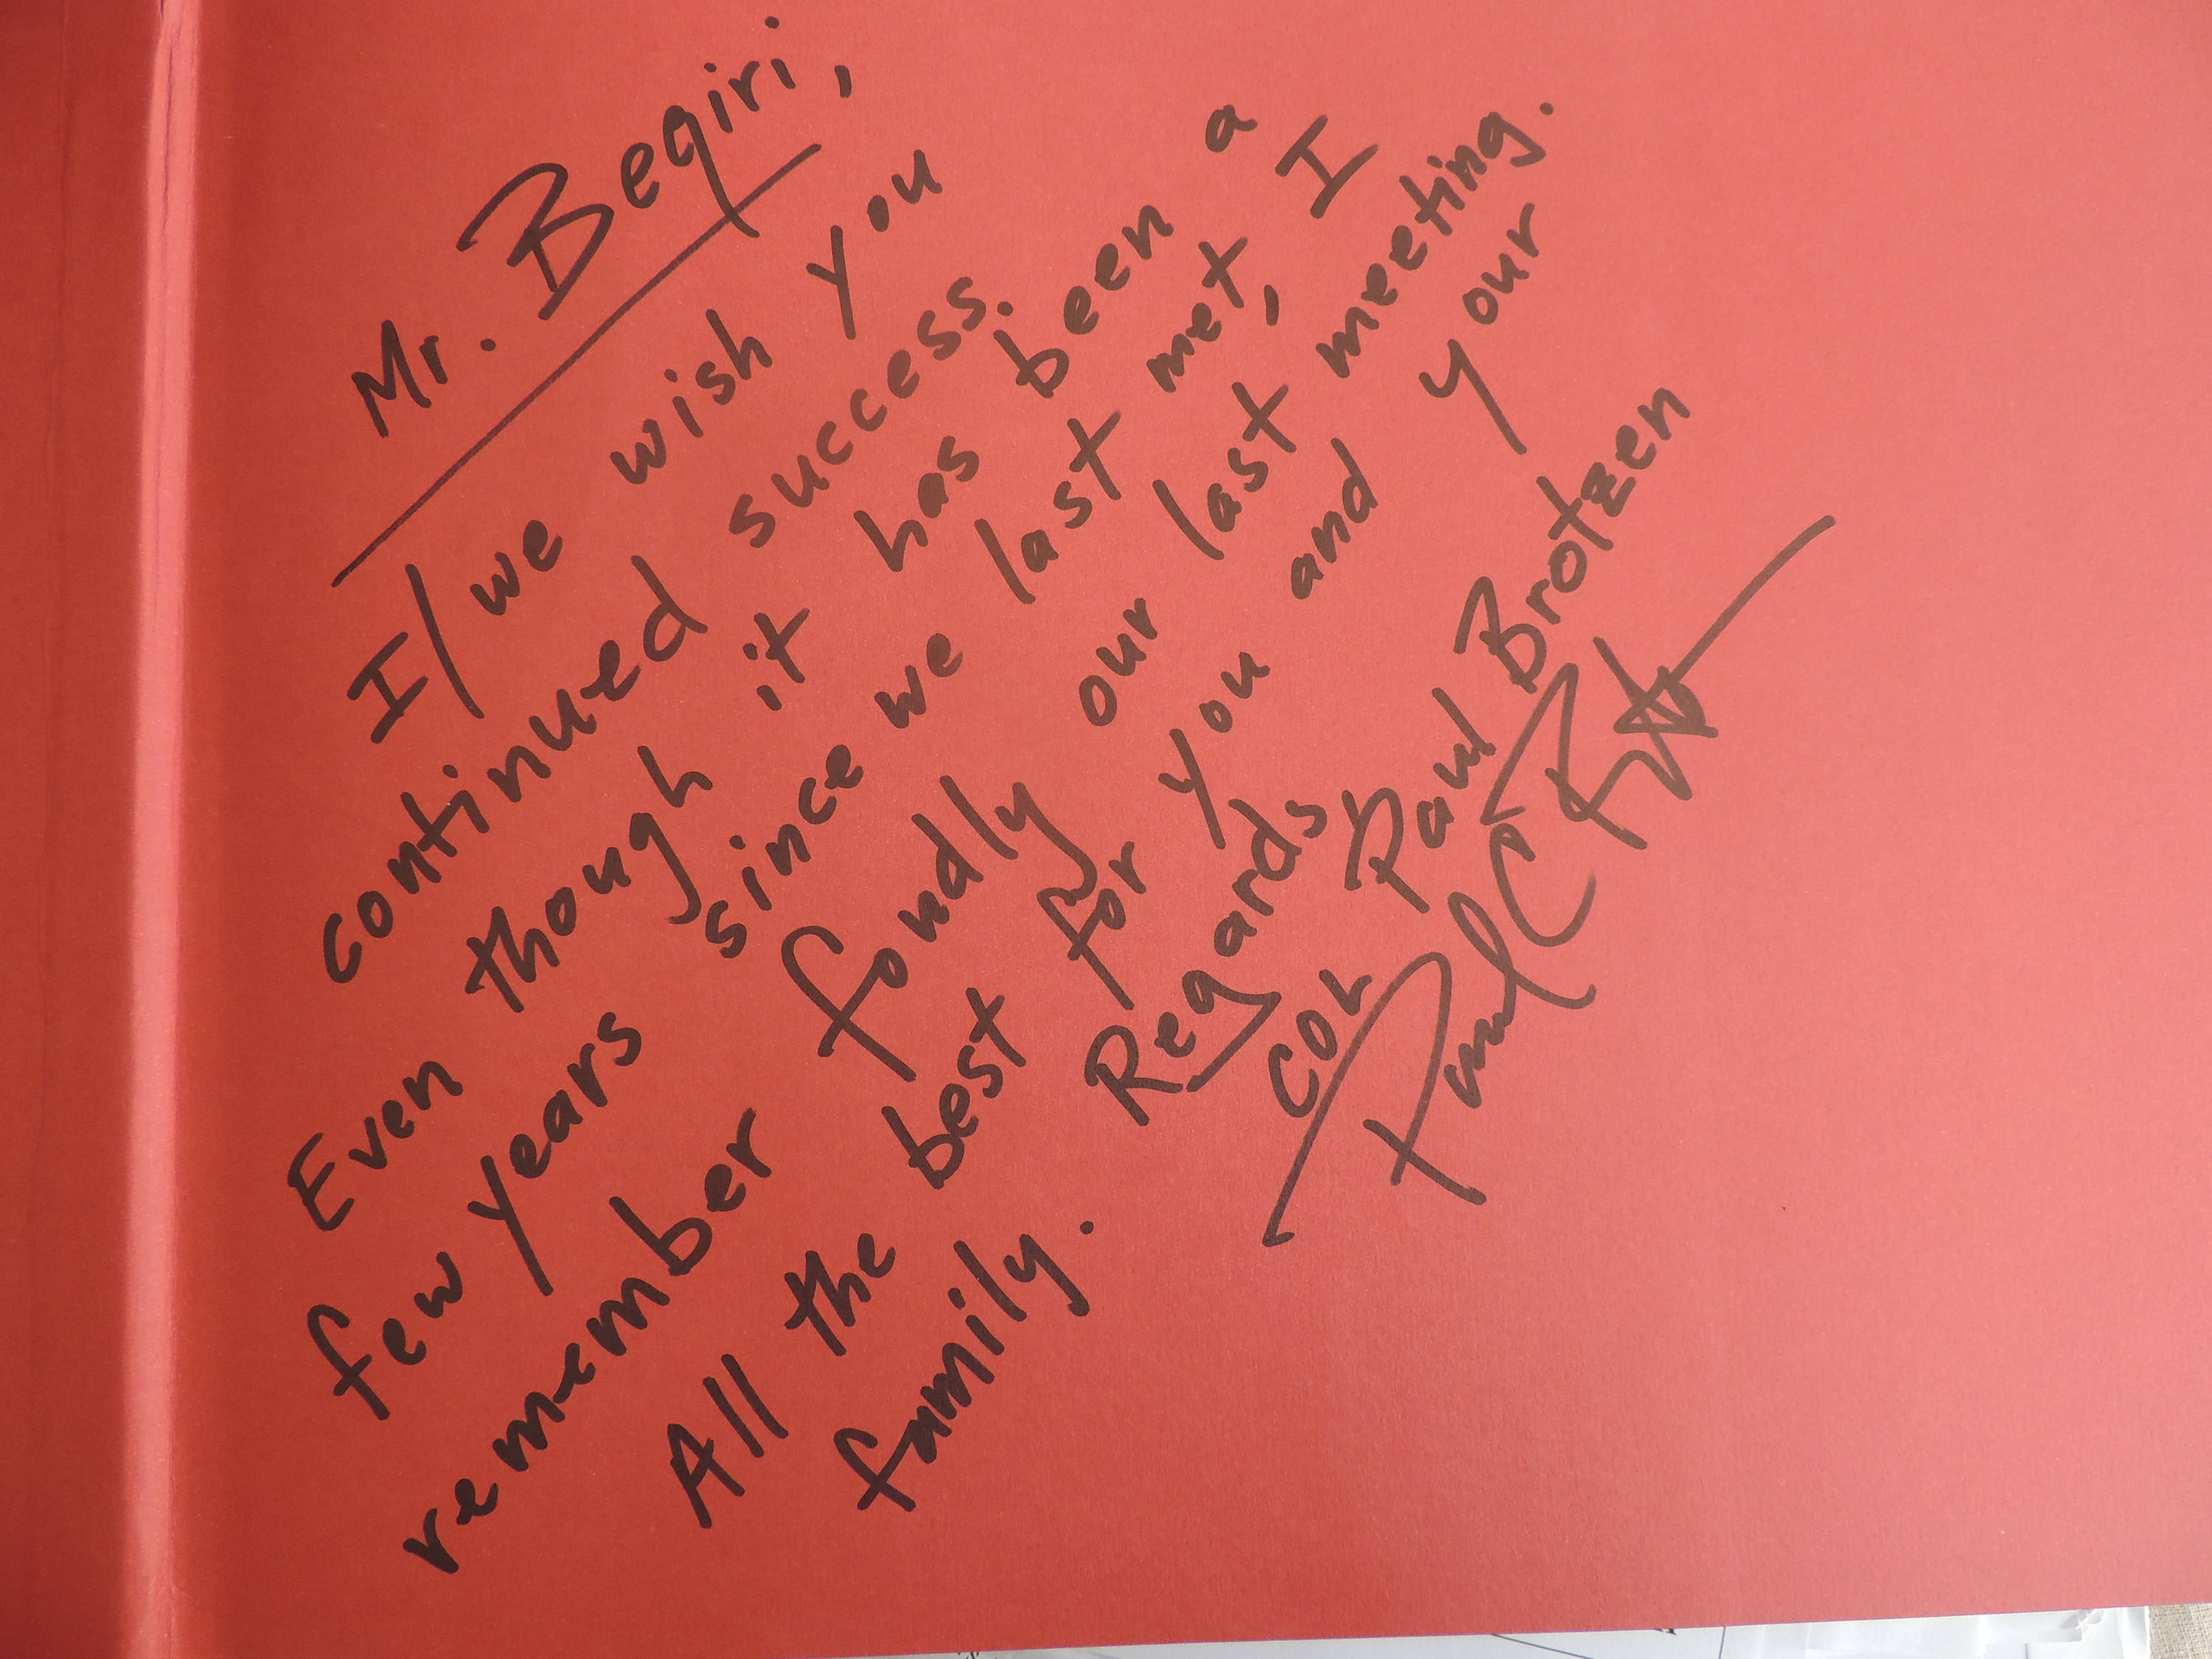 Mr. Beqiri,
I/we wish you
continued success.
Even though it has been a
few years since we last met, I
remember fondly our last meeting.
All the best for you and your
family.
Regards,
COL Paul Brotzen
Paul C Brotzen